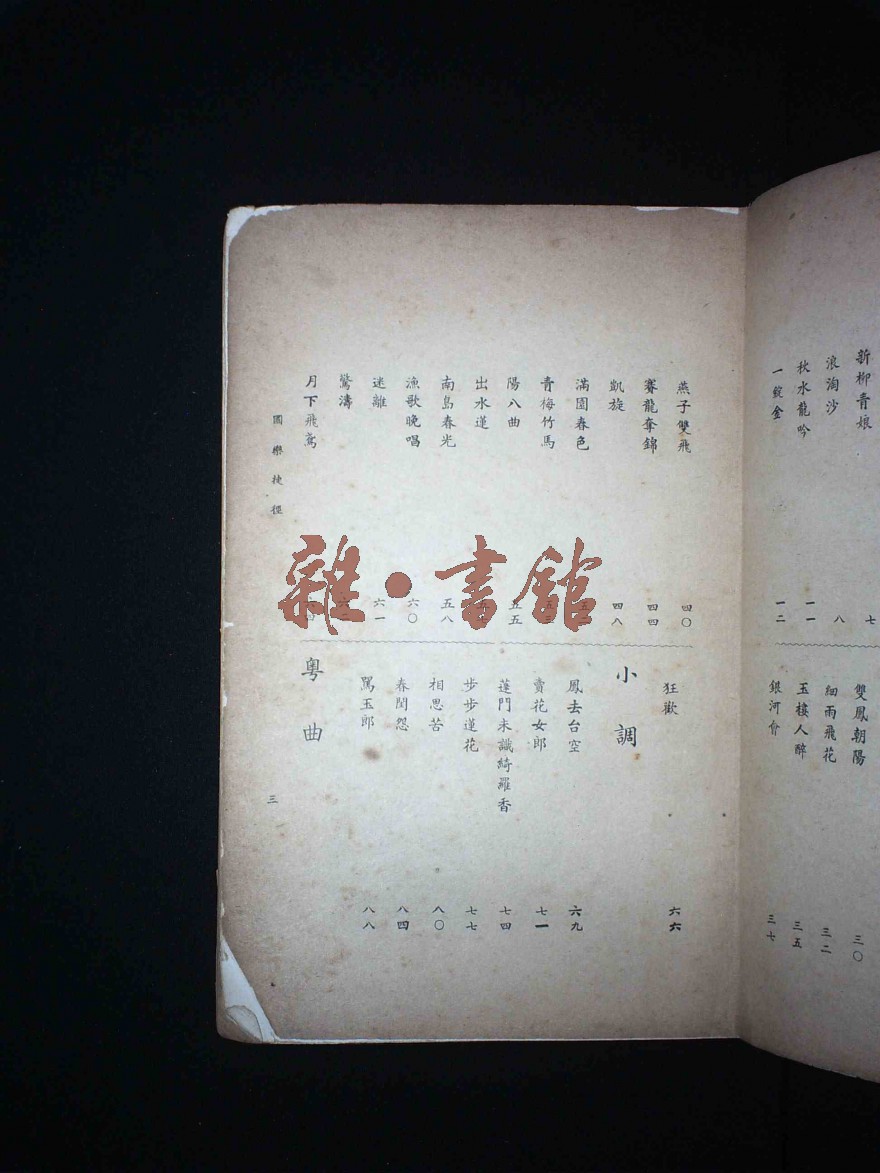 新柳青娘 七
浪淘沙 八
秋水龍吟 一一
一錠金 一二
雙鳳朝陽 三〇
細雨飛花 三二
玉樓人醉 三五
銀河會 三七
燕子雙飛 四〇
賽龍奪錦 四四
凱旋 四八
滿園春色
青梅竹馬
陽八曲 五五
出水蓮
南島春光 五八
漁歌晚唱 六〇
迷離 六一
驚濤
月下飛鳶
狂歡 六六
小調
鳳去台空 六九
賣花女郎 七一
蓬門未識綺羅香 七四
步步蓮花 七七
相思苦 八〇
春閨怨 八四
罵玉郎 八八
粵曲
國樂捷徑 三
雜·書館